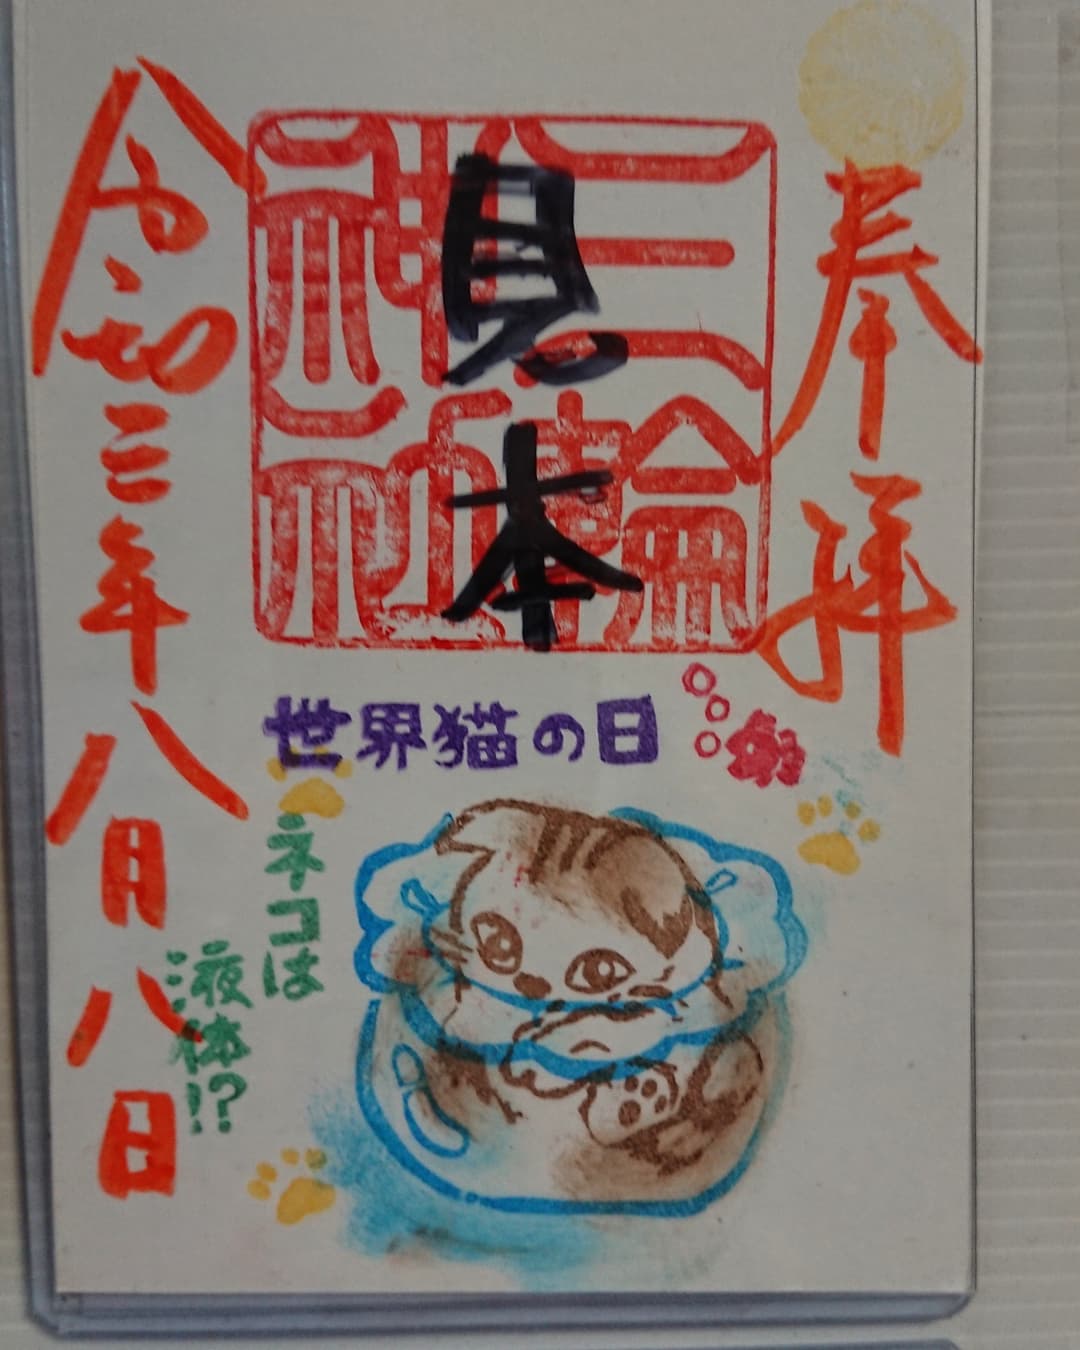 奉拝
三輪
神社
見本
令和三年八月八日
世界猫の日
ネコは
液体!?